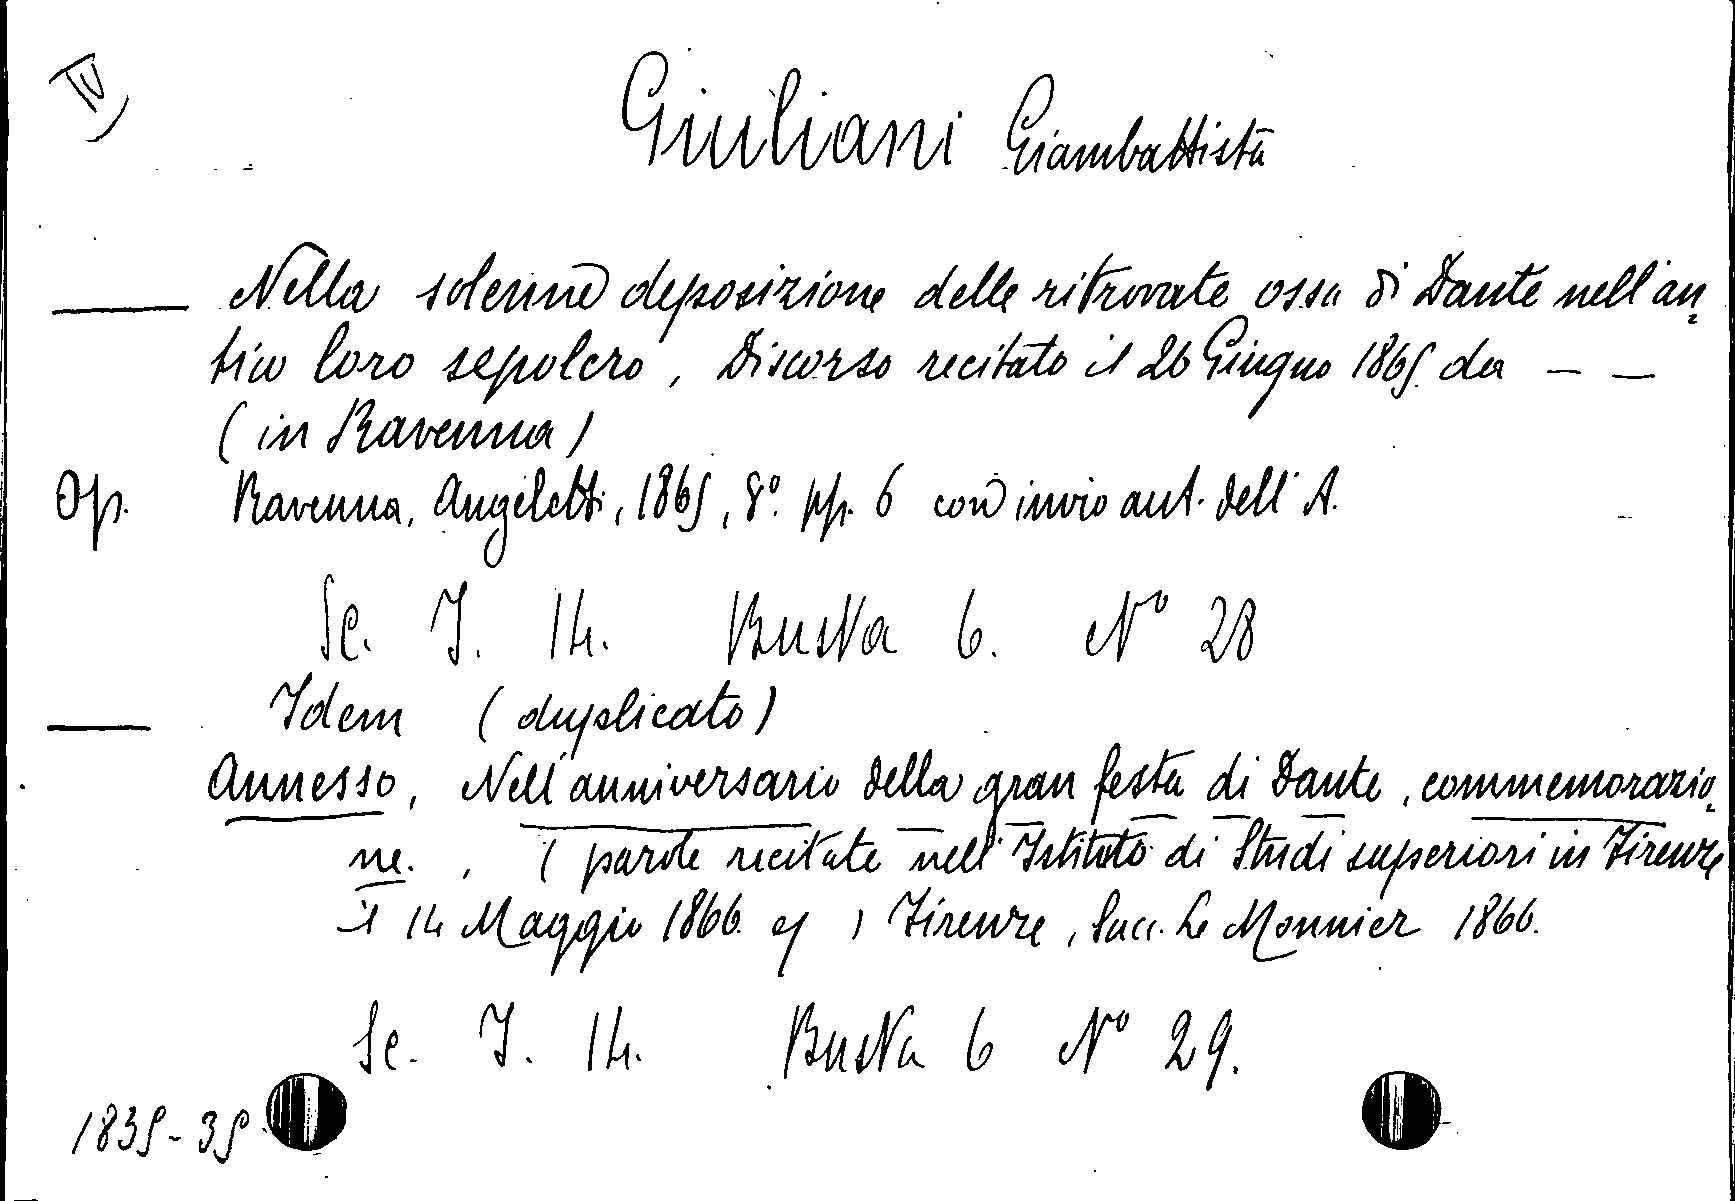 IV)
Giuliani Giambattista
—— Nella solenne deposizione delle ritrovate ossa di Dante nell'an-
tico loro sepolcro, Discorso recitato il 26 Giugno 1865. da — —
(in Ravenna)
Op. Ravenna, Angeletti, 1865, 8°. pp. 6 con invio aut. dell'A.
Sc. I. 14. Busta 6. N° 28
—— Idem (duplicato)
Annesso, Nell'anniversario della gran festa di Dante, commemorazio-
ne. , (parole recitate nell'Istituto di Studi superiori in Firenze
il 14 Maggio 1866. ) Firenze, Succ. Le Monnier 1866.
Sc. I. 14. Busta 6 N° 29.
1835-35